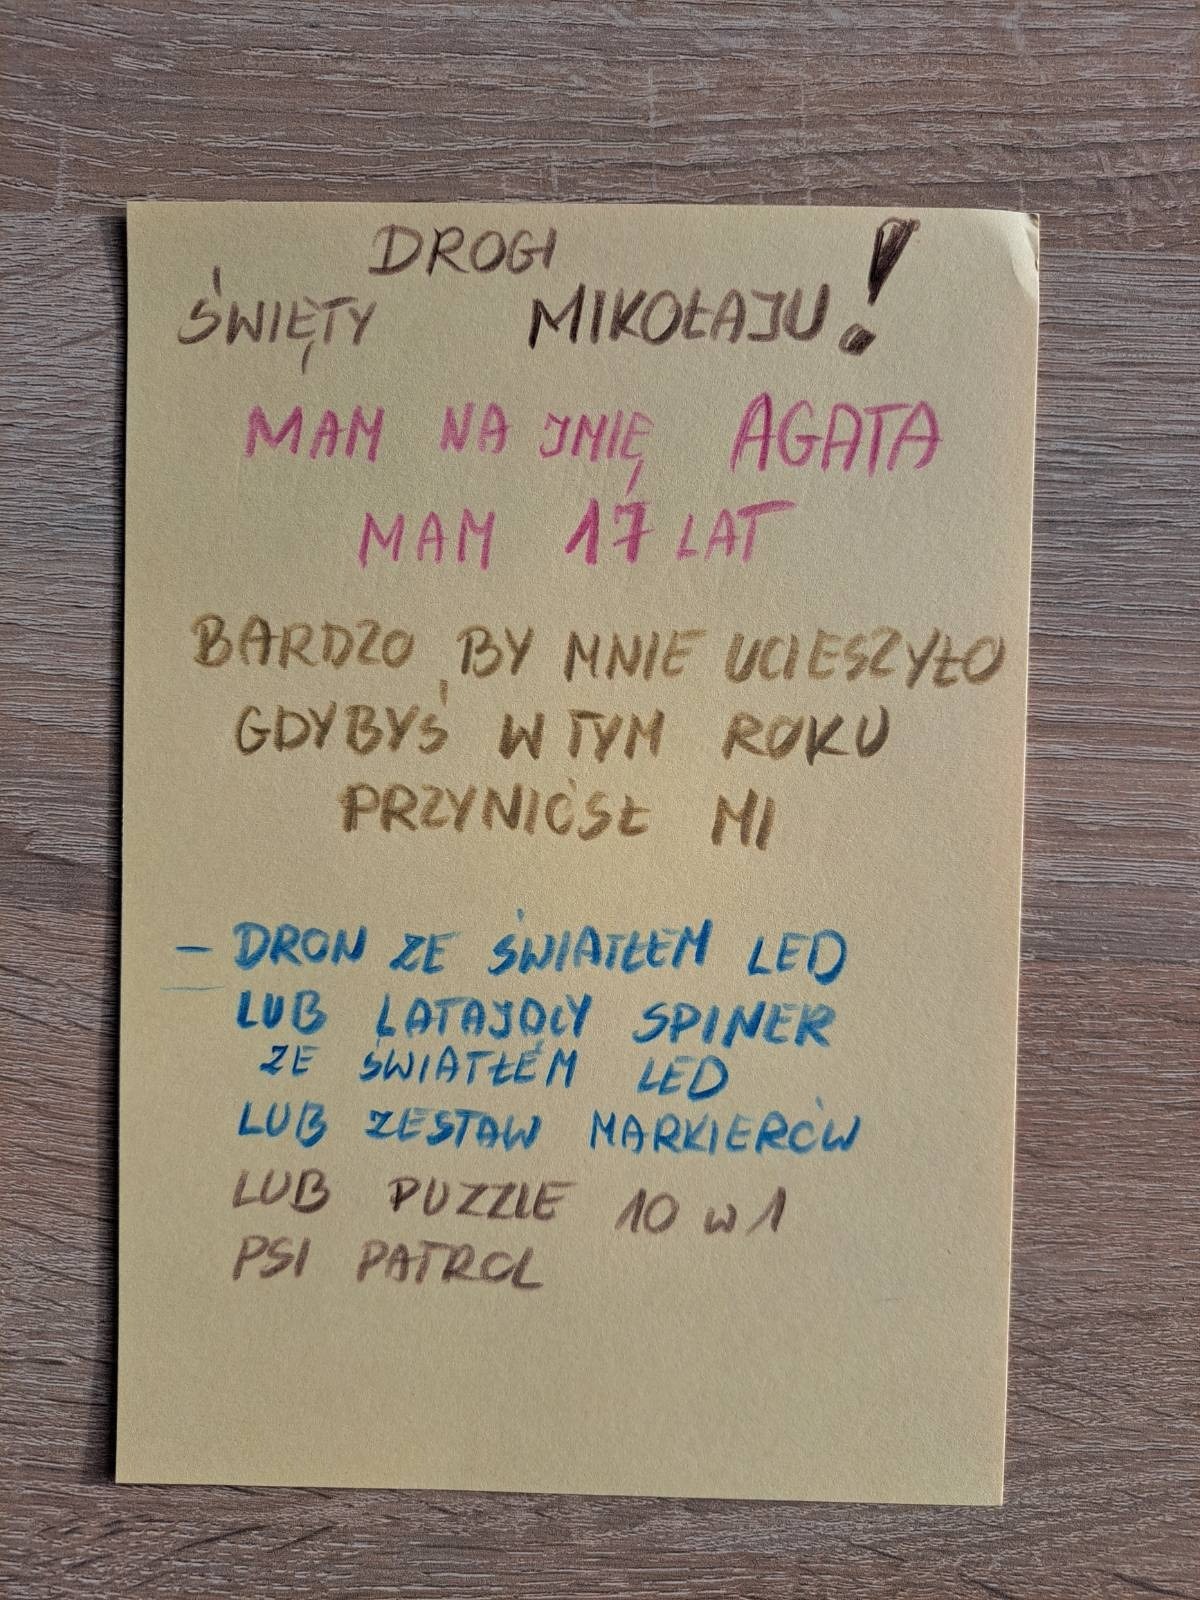 DROGI
ŚWIĘTY MIKOŁAJU!
MAM NA IMIĘ AGATA
MAM 17 LAT
BARDZO BY MNIE UCIESZYŁO
GDYBYŚ W TYM ROKU
PRZYNIÓSŁ MI
- DRON ZE ŚWIATŁEM LED
LUB LATAJĄCY SPINER
ZE ŚWIATŁEM LED
LUB ZESTAW MARKIERÓW
LUB PUZZLE 10 w 1
PSI PATROL